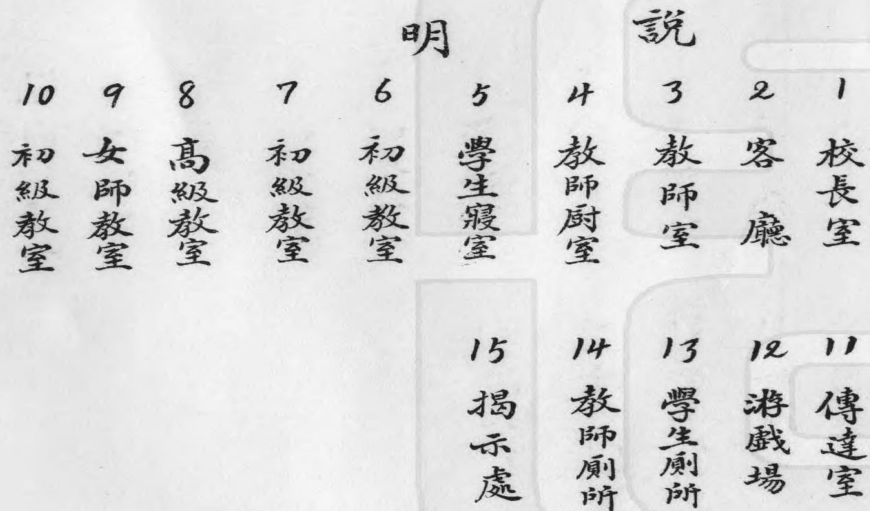 說明
1 校長室
2 客廳
3 教師室
4 教師厨室
5 學生寢室
6 初級教室
7 初級教室
8 高級教室
9 女師教室
10 初級教室
11 傳達室
12 游戲場
13 學生厠所
14 教師厠所
15 揭示處